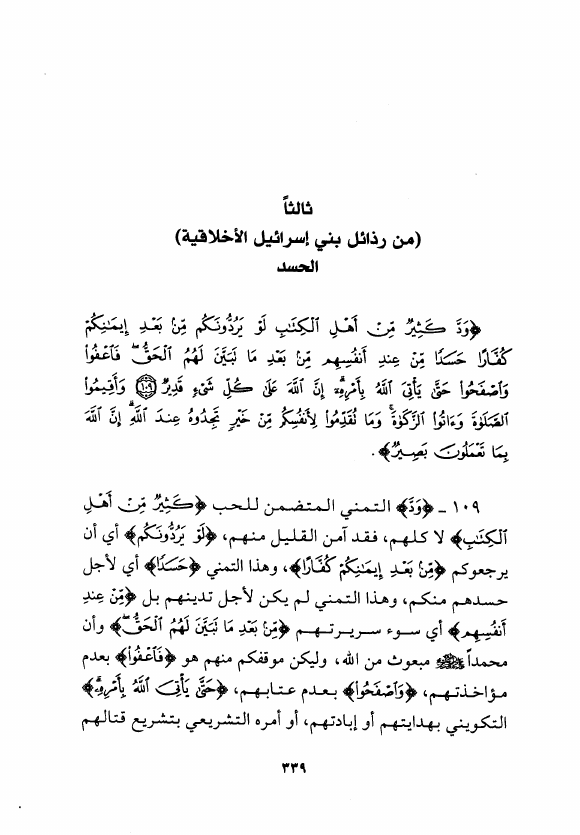 ثالثاً
(من رذائل بني إسرائيل الأخلاقية)
الحسد
﴿وَدَّ كَثِيرٌ مِّنْ أَهْلِ الْكِتَابِ لَوْ يَرُدُّونَكُم مِّنْ بَعْدِ إِيمَانِكُمْ
كُفَّارًا حَسَدًا مِّنْ عِندِ أَنفُسِهِم مِّنْ بَعْدِ مَا تَبَيَّنَ لَهُمُ الْحَقُّ فَاعْفُوا
وَاصْفَحُوا حَتَّى يَأْتِيَ اللَّهُ بِأَمْرِهِ إِنَّ اللَّهَ عَلَى كُلِّ شَيْءٍ قَدِيرٌ ۝١٠٩ وَأَقِيمُوا
الصَّلَوٰةَ وَءَاتُوا الزَّكَوٰةَ وَمَا تُقَدِّمُوا لِأَنفُسِكُم مِّنْ خَيْرٍ تَجِدُوهُ عِندَ اللَّهِ إِنَّ اللَّهَ
بِمَا تَعْمَلُونَ بَصِيرٌ﴾.
١٠٩ ـ ﴿وَدَّ﴾ التمني المتضمن للحب ﴿كَثِيرٌ مِّنْ أَهْلِ
الْكِتَابِ﴾ لا كلهم، فقد آمن القليل منهم، ﴿لَوْ يَرُدُّونَكُم﴾ أي أن
يرجعوكم ﴿مِّنْ بَعْدِ إِيمَانِكُمْ كُفَّارًا﴾، وهذا التمني ﴿حَسَدًا﴾ أي لأجل
حسدهم منكم، وهذا التمني لم يكن لأجل تدينهم بل ﴿مِّنْ عِندِ
أَنفُسِهِم﴾ أي سوء سريرتهم ﴿مِّنْ بَعْدِ مَا تَبَيَّنَ لَهُمُ الْحَقُّ﴾ وأن
محمداً ﷺ مبعوث من الله، وليكن موقفكم منهم هو ﴿فَاعْفُوا﴾ بعدم
مؤاخذتهم، ﴿وَاصْفَحُوا﴾ بعدم عتابهم، ﴿حَتَّى يَأْتِيَ اللَّهُ بِأَمْرِهِ﴾
التكويني بهدايتهم أو إبادتهم، أو أمره التشريعي بتشريع قتالهم
٣٣٩